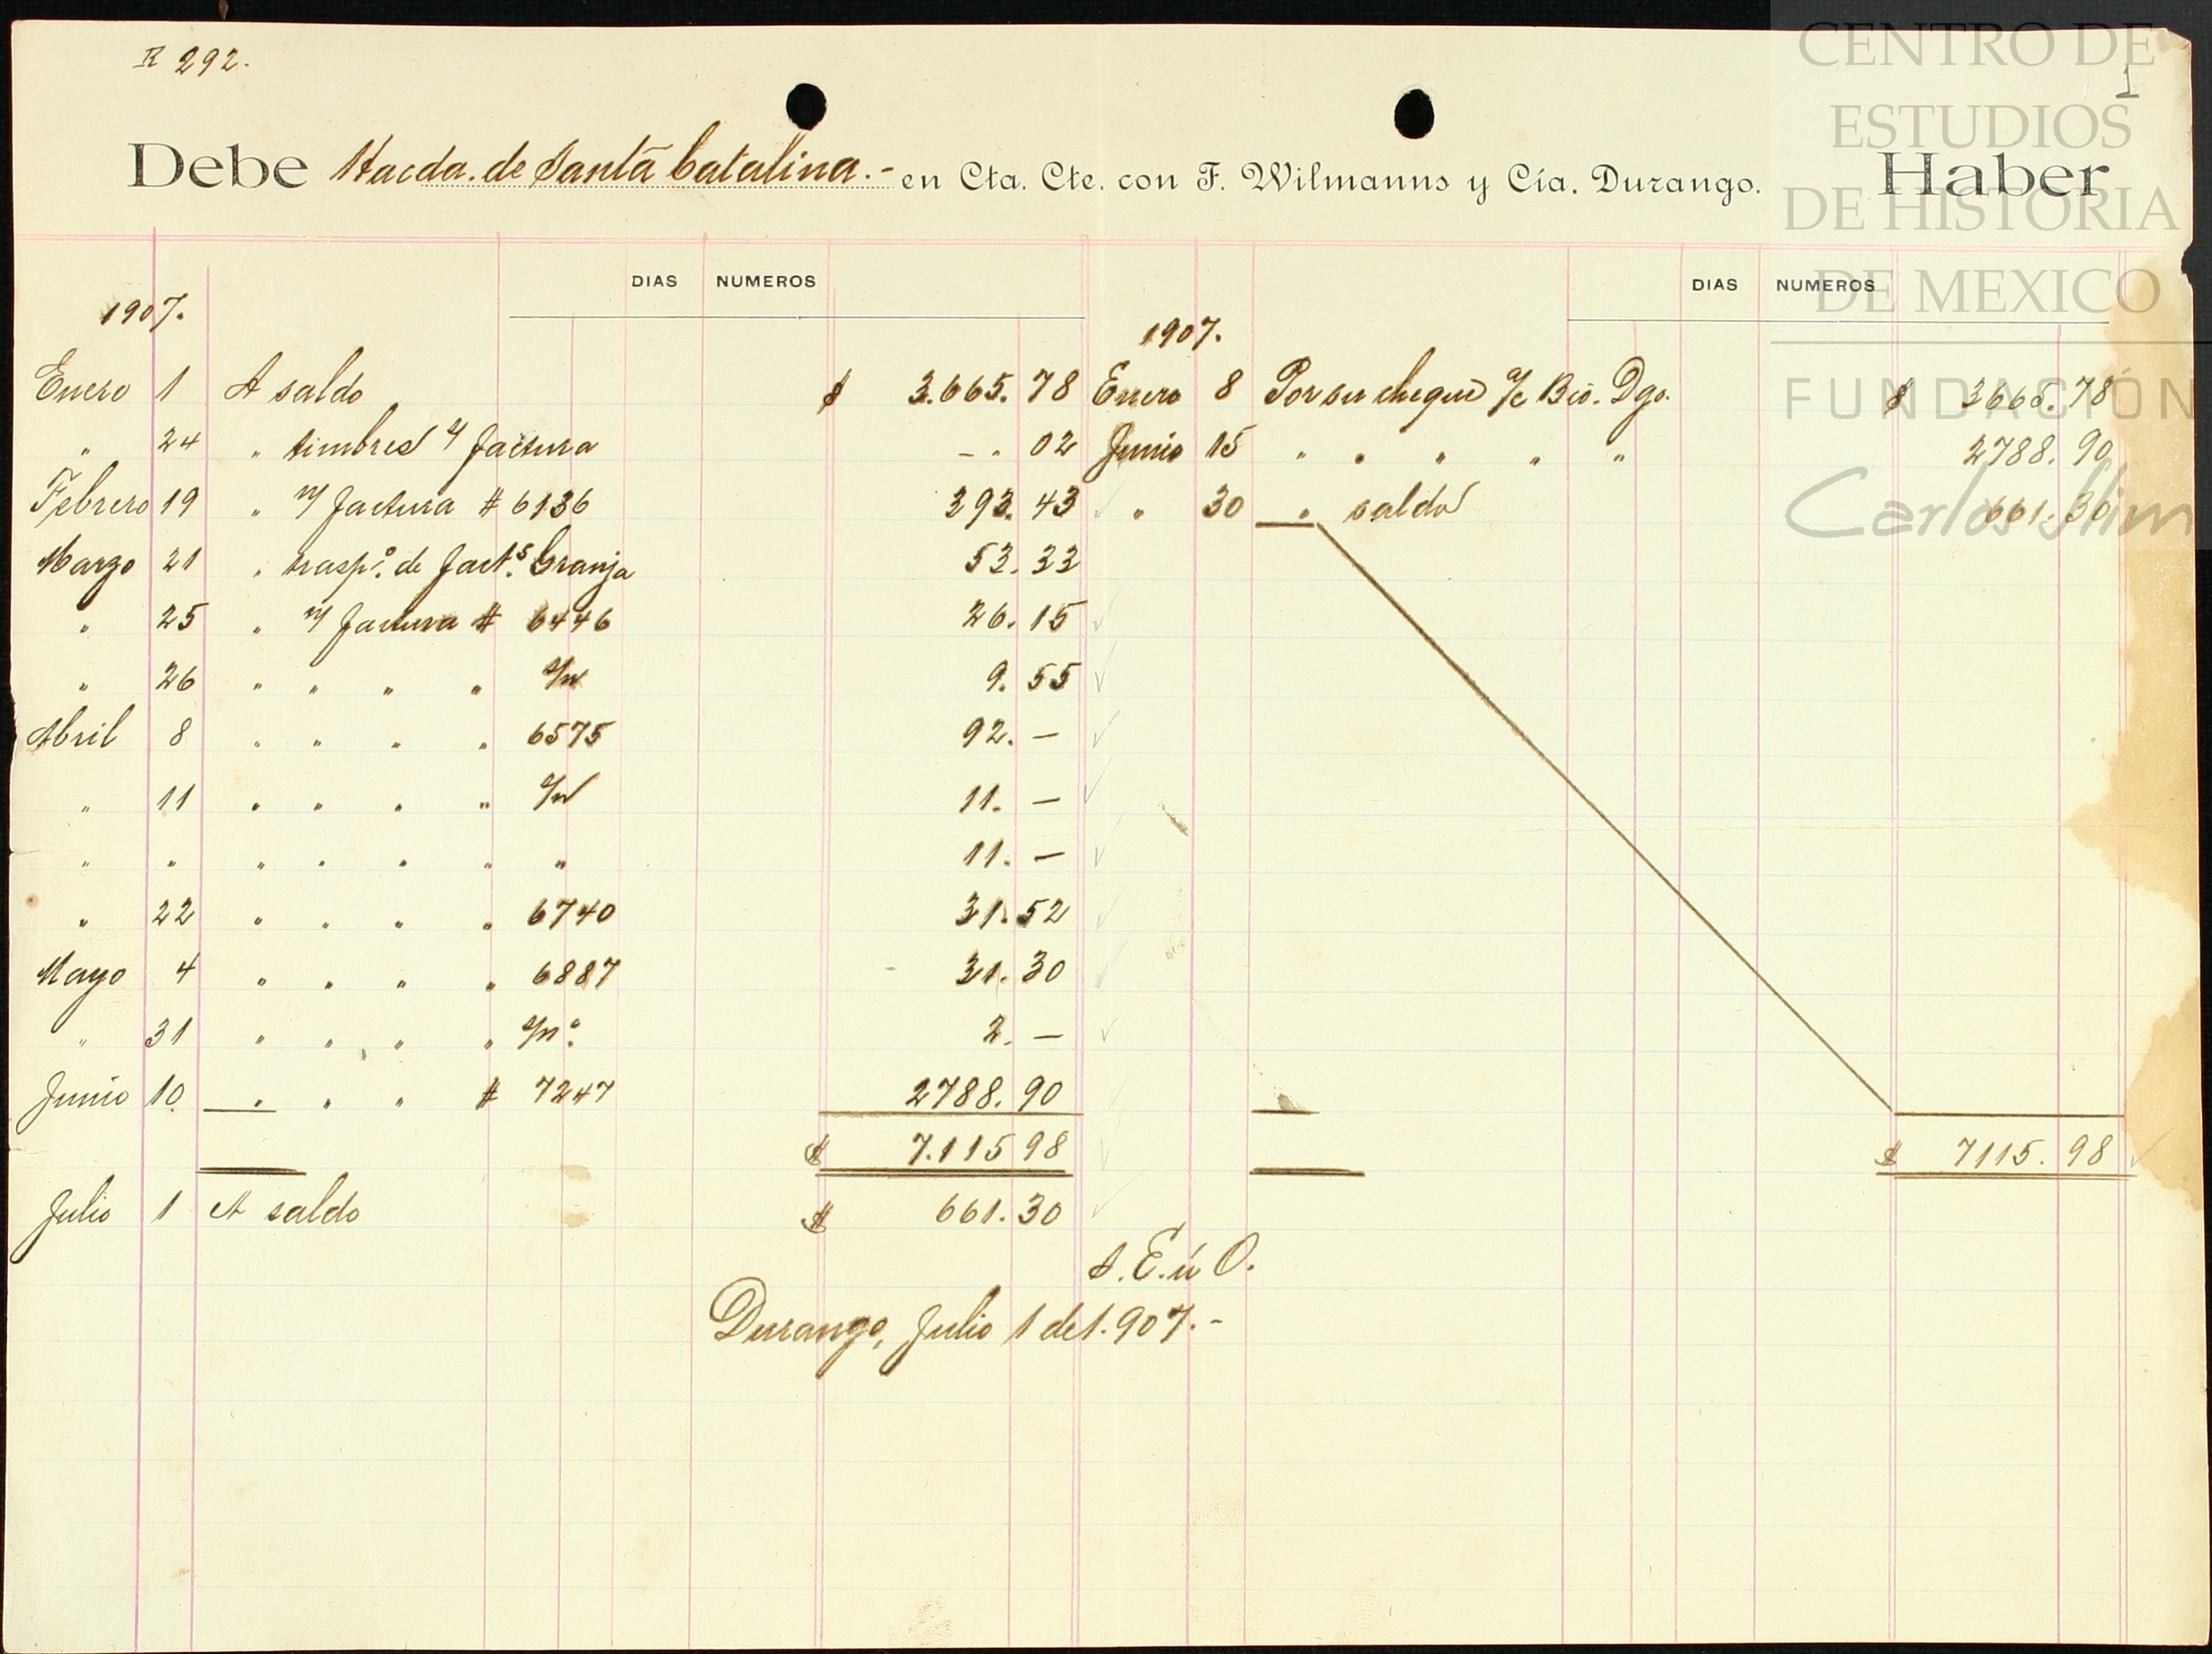 R 292.
1
Debe Hacda. de Santa Catalina.- en Cta. Cte. con F. Wilmanns y Cía. Durango. Haber
DIAS NUMEROS DIAS NUMEROS
1907. 1907.
Enero 1 A saldo $ 3.665.78 Enero 8 Por su cheque a/c Bco. Dgo. $ 3665.78
" 24 " timbres y factura -. 02 Junio 15 " " " " " 2788.90
Febrero 19 " n/ factura # 6136 393.43 " 30 " saldo 661.30
Marzo 21 " trasp.º de fact.s Granja 53.33
" 25 " n/ factura # 6446 26.15
" 26 " " " " s/n 9.55
Abril 8 " " " " 6575 92. —
" 11 " " " " s/n 11. —
" " " " " " " 11. —
" 22 " " " " 6740 31.52
Mayo 4 " " " " 6887 31.30
" 31 " " " " s/nº 2. —
Junio 10 " " " # 7247 2788.90
$ 7.115 98 $ 7115.98
Julio 1 A saldo $ 661.30
S. E. ú O.
Durango, Julio 1 de 1.907.-
CENTRO DE
ESTUDIOS
DE HISTORIA
DE MEXICO
FUNDACIÓN
Carlos Slim